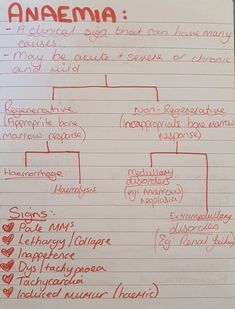 ANAEMIA:
- A clinical sign that can have many
causes..
- May be acute + severe or chronic
and mild
Regenerative
(Appropriate bone
marrow response)
Non-Regenerative
(Inappropriate bone marrow
response)
Haemorrhage
Haemolysis
Medullary
disorders
(eg: Marrow
Neoplasia)
Extramedullary
disorders
(Eg: Renal failure)
Signs:
Pale MMs
Lethargy/Collapse
Inappetence
Dys/tachypnoea
Tachycardia
Induced murmur (haemic)